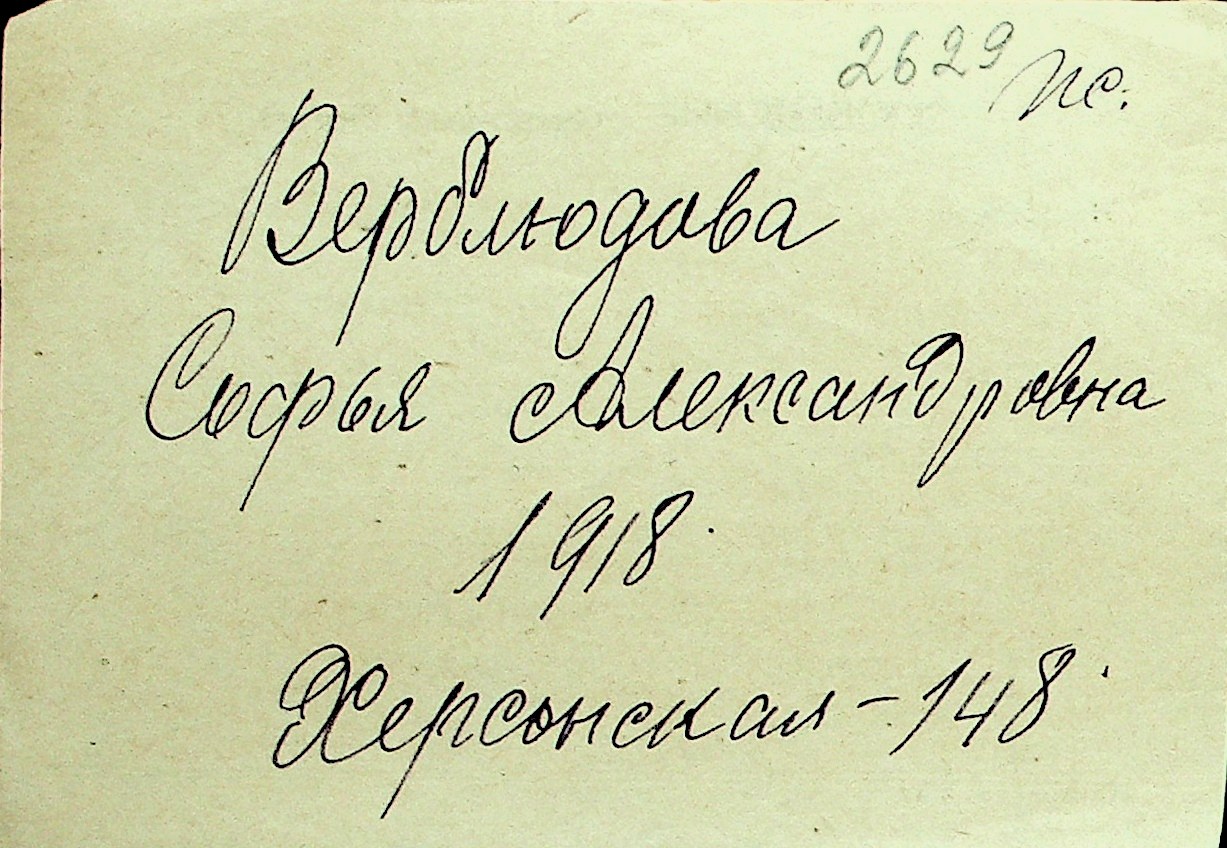 2629 пс.
Верблюдова
Софья Александровна
1918
Херсонская - 148